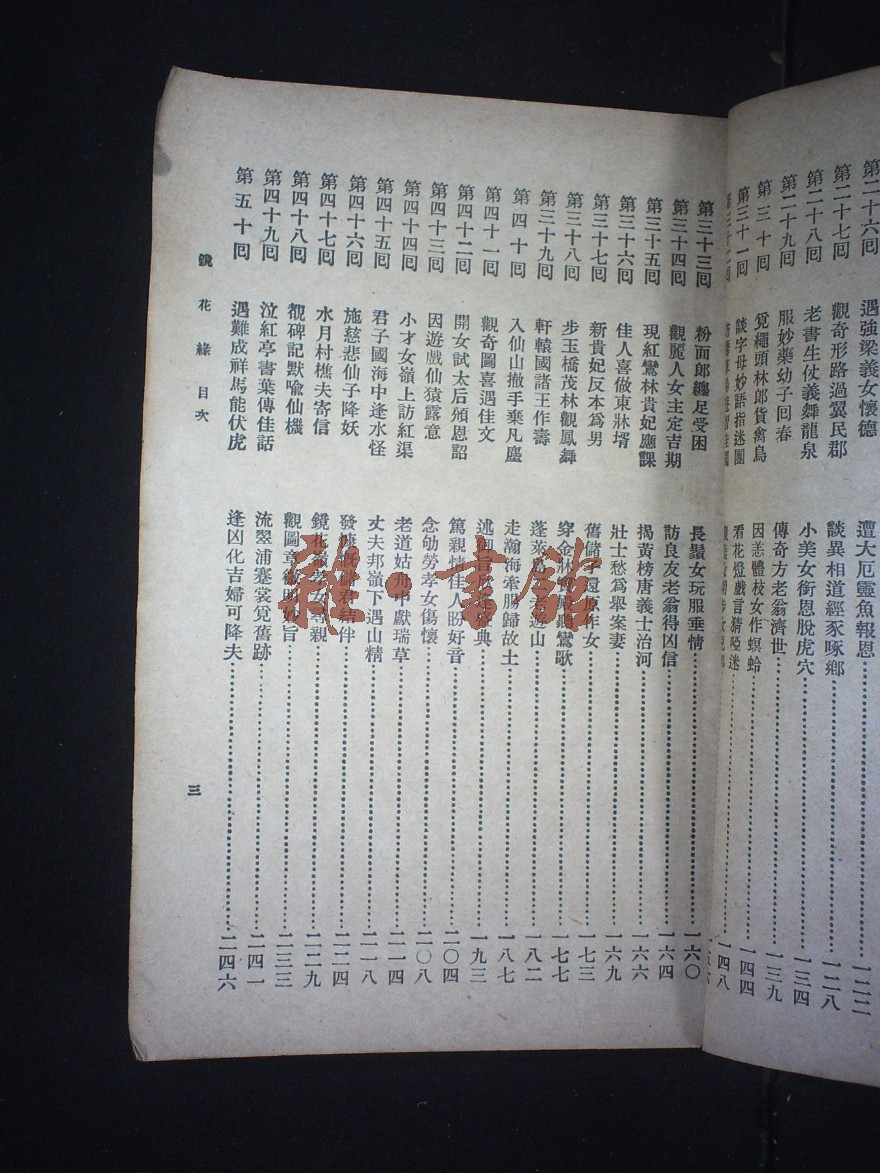 第二十六回 遇強梁義女懷德 遭大厄靈魚報恩…………一二二
第二十七回 觀奇形路過翼民郡 談異相道經豕喙鄉…………一二八
第二十八回 老書生仗義舞龍泉 小美女銜恩脫虎穴…………一三四
第二十九回 服妙藥幼子回春 傳奇方老翁濟世…………一三九
第三十回 覓蠅頭林郎貨禽鳥 因恙體枝女作螟蛉…………一四四
第三十一回 談字母妙語指迷團 看花燈戲言猜啞迷…………一四八
第三十三回 粉面郎纏足受困 長鬚女玩股垂情…………一六〇
第三十四回 觀麗人女主定吉期 訪良友老翁得凶信…………一六四
第三十五回 現紅鸞林貴妃應課 揭黃榜唐義士治河…………一六六
第三十六回 佳人喜做東牀壻 壯士愁爲舉案妻…………一六九
第三十七回 新貴妃反本爲男 舊儲子還原作女…………一七三
第三十八回 步玉橋茂林觀鳳舞 穿金牀寶殿聽鸞歌…………一七七
第三十九回 軒轅國諸王作壽 蓬萊島二老遊山…………一八二
第四十回 入仙山撤手棄凡塵 走瀚海牽腸歸故土…………一八七
第四十一回 觀奇圖喜遇佳文 述御旨欣逢盛典…………一九三
第四十二回 開女試太后頒恩詔 篤親情佳人盼好音…………二〇四
第四十三回 因遊戲仙猿露意 念劬勞孝女傷懷…………二〇八
第四十四回 小才女嶺上訪紅渠 老道姑舟中獻瑞草…………二一四
第四十五回 君子國海中逢水怪 丈夫邦嶺下遇山精…………二一八
第四十六回 施慈悲仙子降妖 發慷慨儲君結伴…………二二四
第四十七回 水月村樵夫寄信 鏡花嶺孝女尋親…………二二九
第四十八回 覩碑記默喻仙機 觀圖章微明妙旨…………二三三
第四十九回 泣紅亭書葉傳佳話 流翠浦蹇裳覓舊跡…………二四一
第五十回 遇難成祥馬能伏虎 逢凶化吉婦可降夫…………二四六
鏡花緣 目次 三
雅·書館